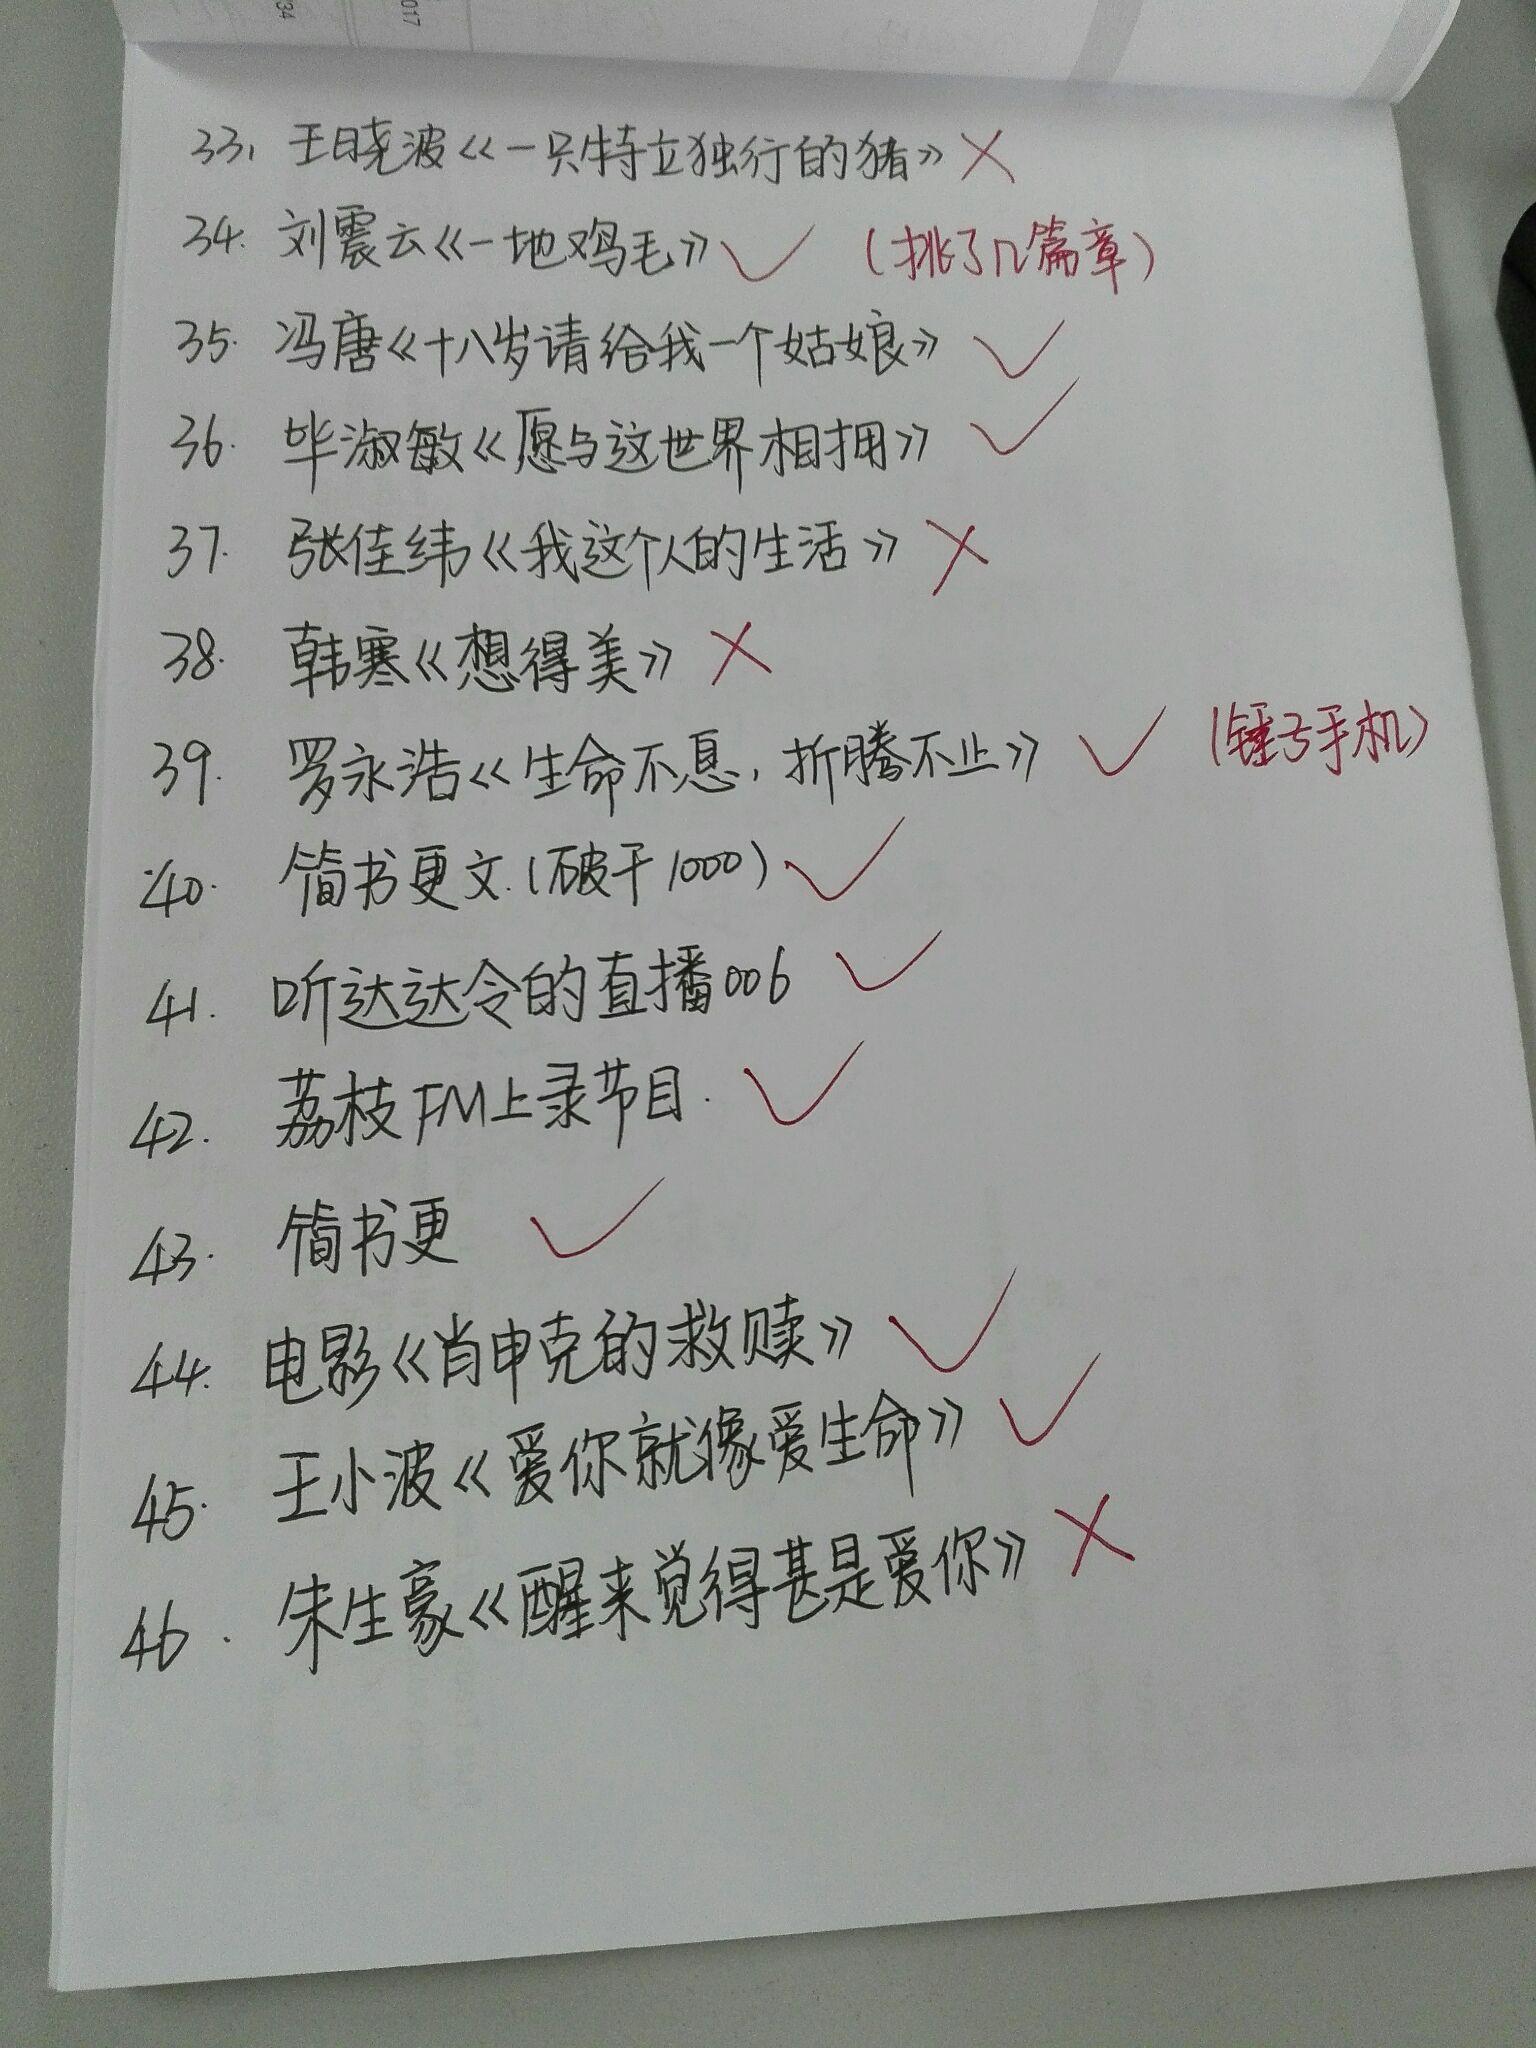 34
017
33, 王晓波《一只特立独行的猪》 ×
34. 刘震云《一地鸡毛》 ✓ (挑了几篇章)
35. 冯唐《十八岁请给我一个姑娘》 ✓
36. 毕淑敏《愿与这世界相拥》 ✓
37. 张佳纬《我这个人的生活》 ×
38. 韩寒《想得美》 ×
39. 罗永浩《生命不息,折腾不止》 ✓ (锤子手机)
40. 简书更文.(破千1000) ✓
41. 听达达令的直播006 ✓
42. 荔枝FM上录节目. ✓
43. 简书更 ✓
44. 电影《肖申克的救赎》 ✓
45. 王小波《爱你就像爱生命》 ✓
46. 朱生豪《醒来觉得甚是爱你》 ×